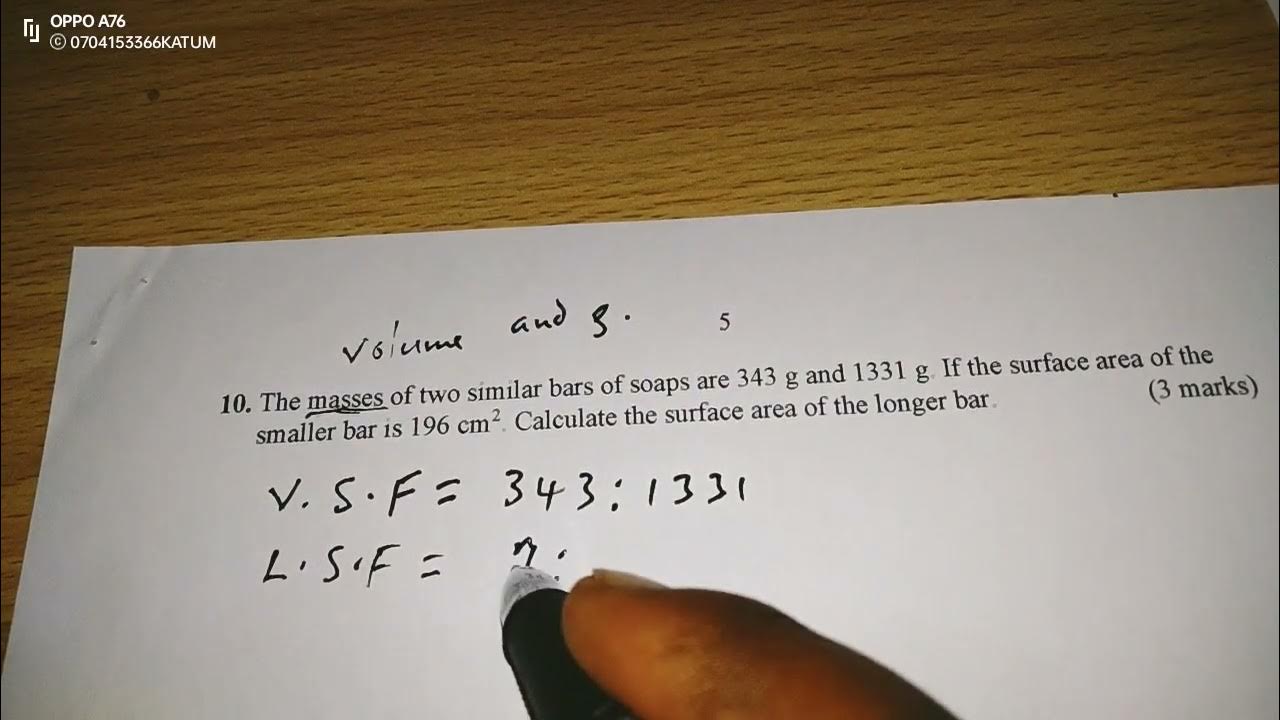 OPPO A76
© 0704153366KATUM
volume and g.
5
10. The masses of two similar bars of soaps are 343 g and 1331 g. If the surface area of the
smaller bar is 196 cm². Calculate the surface area of the longer bar.
(3 marks)
V.S.F = 343:1331
L.S.F = 7: